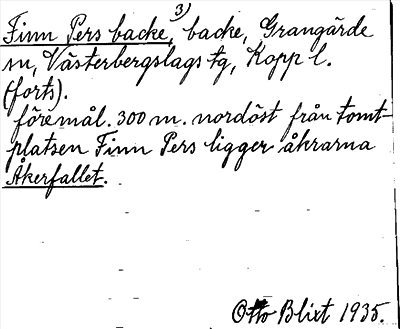 Finn Pers backe, 3) backe, Grangärde
m, Västerbergslags tg, Kopp l.
(forts).
föremål. 300 m. nordöst från tomt-
platsen Finn Pers ligger åkrarna
Åkerfallet.
Otto Blixt 1935.